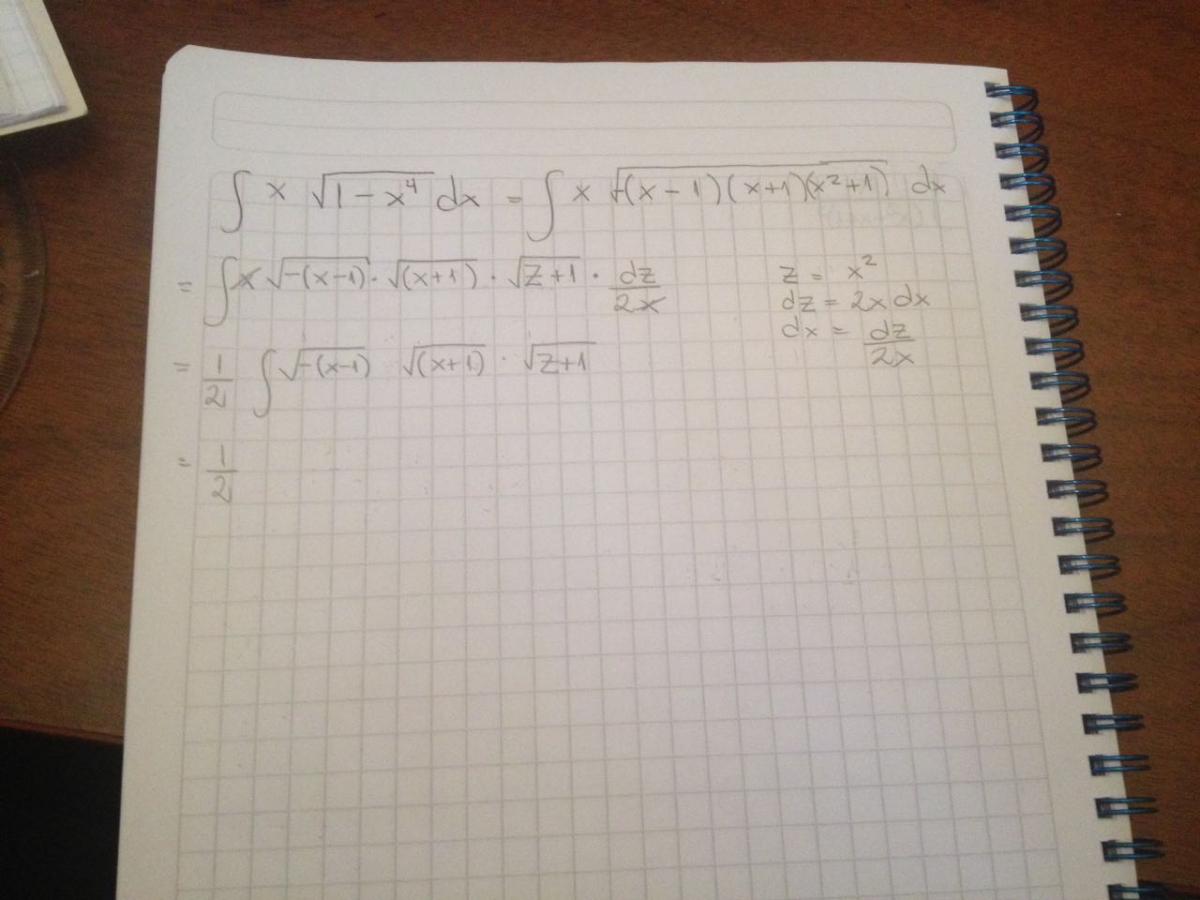 ∫ x √(1 - x⁴) dx = ∫ x √(-(x - 1)(x+1)(x²+1)) dx
= ∫ x √(-(x-1)) · √((x+1)) · √(z+1) · dz/2x
z = x²
dz = 2x dx
dx = dz/2x
= 1/2 ∫ √(-(x-1)) √((x+1)) · √(z+1)
= 1/2